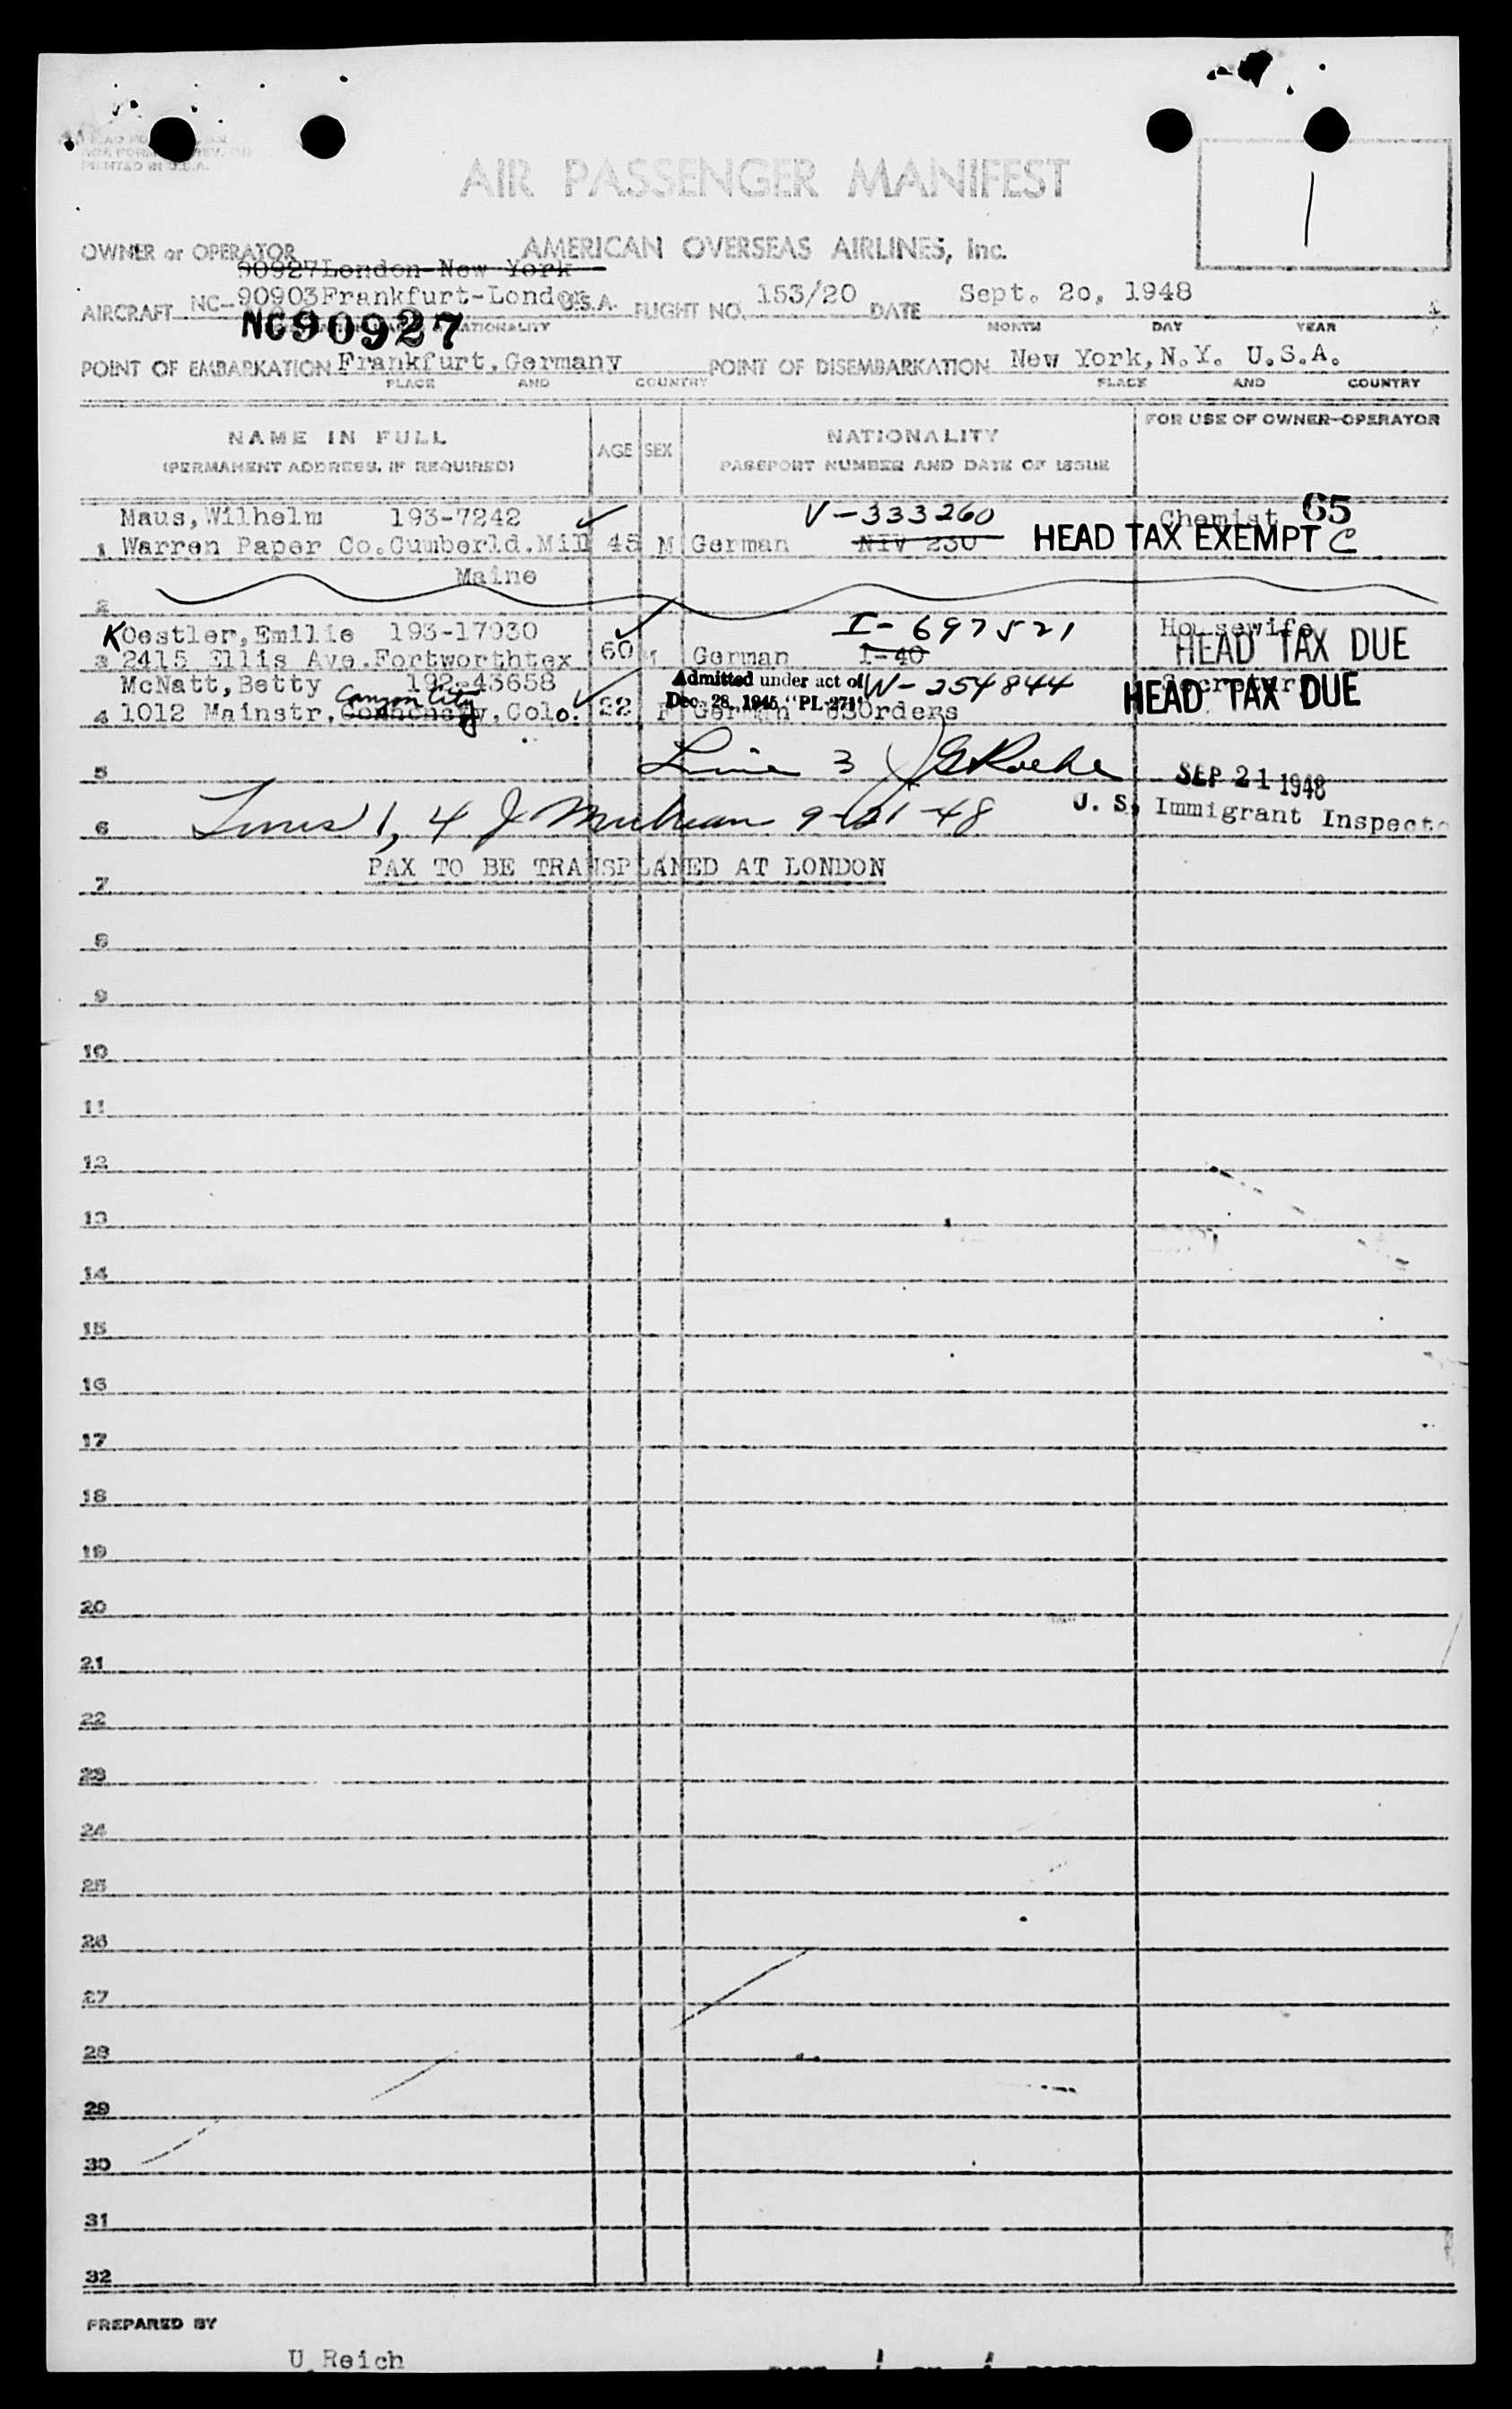 PRINTED IN U.S.A.
AIR PASSENGER MANIFEST
1
OWNER or OPERATOR AMERICAN OVERSEAS AIRLINES, Inc.
90927London-New York
AIRCRAFT NC-90903Frankfurt-London U.S.A. FLIGHT NO. 153/20 DATE Sept. 2o, 1948
NC90927 NATIONALITY MONTH DAY YEAR
POINT OF EMBARKATION Frankfurt,Germany POINT OF DISEMBARKATION New York,N.Y. U.S.A.
PLACE AND COUNTRY PLACE AND COUNTRY
NAME IN FULL
(PERMANENT ADDRESS, IF REQUIRED)
AGE
SEX
NATIONALITY
PASSPORT NUMBER AND DATE OF ISSUE
FOR USE OF OWNER-OPERATOR
Maus,Wilhelm 193-7242 V-333260 Chemist 65
1 Warren Paper Co.Cumberld.Mill 45 M German NIV 230 HEAD TAX EXEMPT C
Maine
2
KOestler,Emilie 193-17030 I-697521 Housewife
3 2415 Ellis Ave.Fortworthtex 60 German I-40 HEAD TAX DUE
McNatt,Betty 192-43658 Admitted under act of W-254844 Secretary
4 1012 Mainstr, Canyon City, Colo. 22 F Dec. 28, 1945 "PL-271" German Orders HEAD TAX DUE
5 Line 3 SEP 21 1948
6 Lines 1, 4 J 9-21-48 U. S. Immigrant Inspecto
PAX TO BE TRANSPLANED AT LONDON
7
8
9
10
11
12
13
14
15
16
17
18
19
20
21
22
23
24
25
26
27
28
29
30
31
32
PREPARED BY
U.Reich